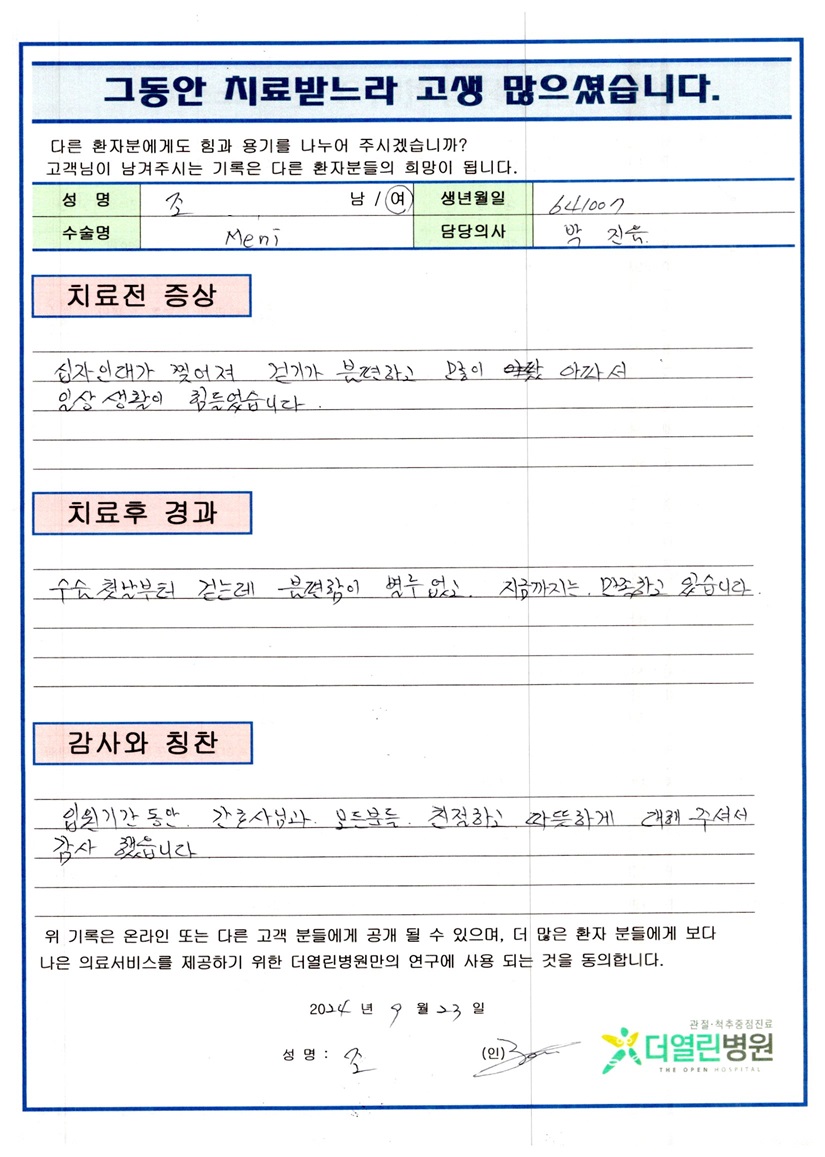 그동안 치료받느라 고생 많으셨습니다.
다른 환자분에게도 힘과 용기를 나누어 주시겠습니까?
고객님이 남겨주시는 기록은 다른 환자분들의 희망이 됩니다.
성 명 조 남 / 여 생년월일 641007
수술명 Meni 담당의사 박 진욱
치료전 증상
십자인대가 찢어져 걷기가 불편하고 많이 아파서
일상 생활이 힘들었습니다.
치료후 경과
수술 첫날부터 걷는데 불편함이 별루 없고. 지금까지는. 만족하고 있습니다.
감사와 칭찬
입원기간 동안. 간호사님과. 모든분들. 친절하고 따뜻하게 대해 주셔서
감사 했읍니다
위 기록은 온라인 또는 다른 고객 분들에게 공개 될 수 있으며, 더 많은 환자 분들에게 보다
나은 의료서비스를 제공하기 위한 더열린병원만의 연구에 사용 되는 것을 동의합니다.
2024 년 9 월 23 일
성 명 : 조 (인)
관절·척추중점진료
더열린병원
THE OPEN HOSPITAL